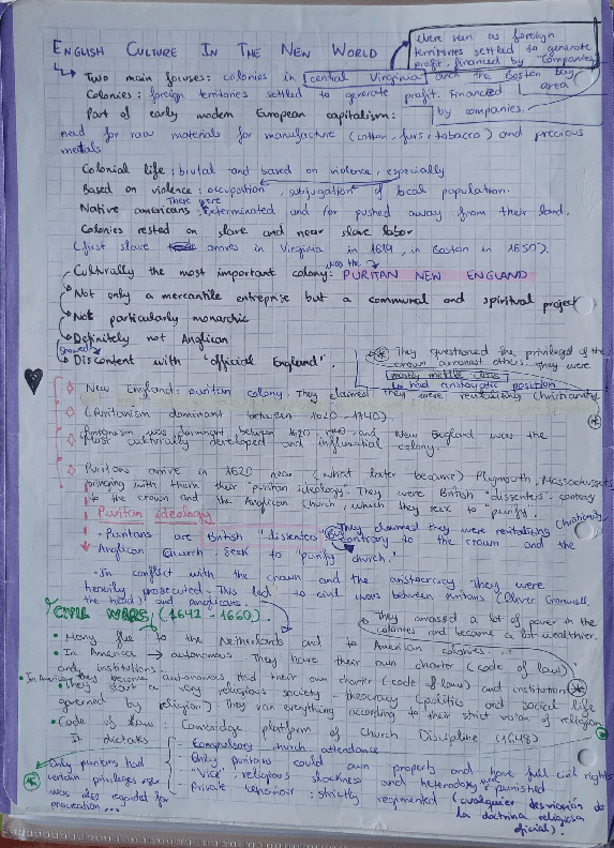 ENGLISH CULTURE IN THE NEW WORLD
Were seen as foreign
territories settled to generate
profit, financed by "Companies
Two main focuses: colonies in central Virginia and the Boston bay area
Colonies: foreign territories settled to generate profit. Financed
by companies.
Part of early modern European capitalism:
need for raw materials for manufacture (cotton, furs, tobacco) and precious
metals
Colonial life: brutal and based on violence, especially
Based on violence: occupation, subjugation of local population.
There were
Native americans: exterminated and/or pushed away from their land.
Colonies rested on slave and near slave labor
(first slave arrives in Virginia in 1619, in Boston in 1650).
was the
Culturally the most important colony: PURITAN NEW ENGLAND
Not only a mercantile entreprise but a communal and spiritual project
Not particularly monarchic
Definitely not Anglican
Discontent with "official England".
They questioned the privileges of the
crown amongst others. They were
mostly middle class
no had aristocratic position
New England: puritan colony. They claimed they were revitalising christianity.
(Puritanism dominant between 1620-1740)
Puritanism was dominant between 1620 and New England was the
most culturally developed and influential colony.
Puritans arrive in 1620 near (what later became) Plymouth, Massachussets
bringing with them their "puritan ideology". They were British "dissenters", contrary
to the crown and the Anglican Church, which they seek to "purify".
Puritan ideology
They claimed they were revitalising christianity
Puritans are British "dissenters" contrary to the crown and the
Anglican Church, seek to "purify church."
In conflict with the crown and the aristocracy. They were
heavily prosecuted. This led to civil wars between puritans (Oliver Cromwell
the head) and anglicans.
CIVIL WARS (1642-1660)
They amassed a lot of power in the
colonies and became a lot wealthier.
Many flee to the Netherlands and to American colonies...
In America → autonomous They have their own charter (code of law)
and institutions.
In America they become autonomous had their own charter (code of law) and institutions
They start a very religious society - theocracy (politics and social life
governed by religion). They ran everything according to their strict vision of religion
Code of law: Cambridge platform of Church Discipline (1648)
It dictates
Compulsory church attendance
Only puritans could own property and have full civil rights
"Vice", religious slackness and heterodoxy were punished
Private behaviour: strictly regimented (cualquier desviación de
la doctrina religiosa
oficial).
Only puritans had
certain privileges
was also regarded for